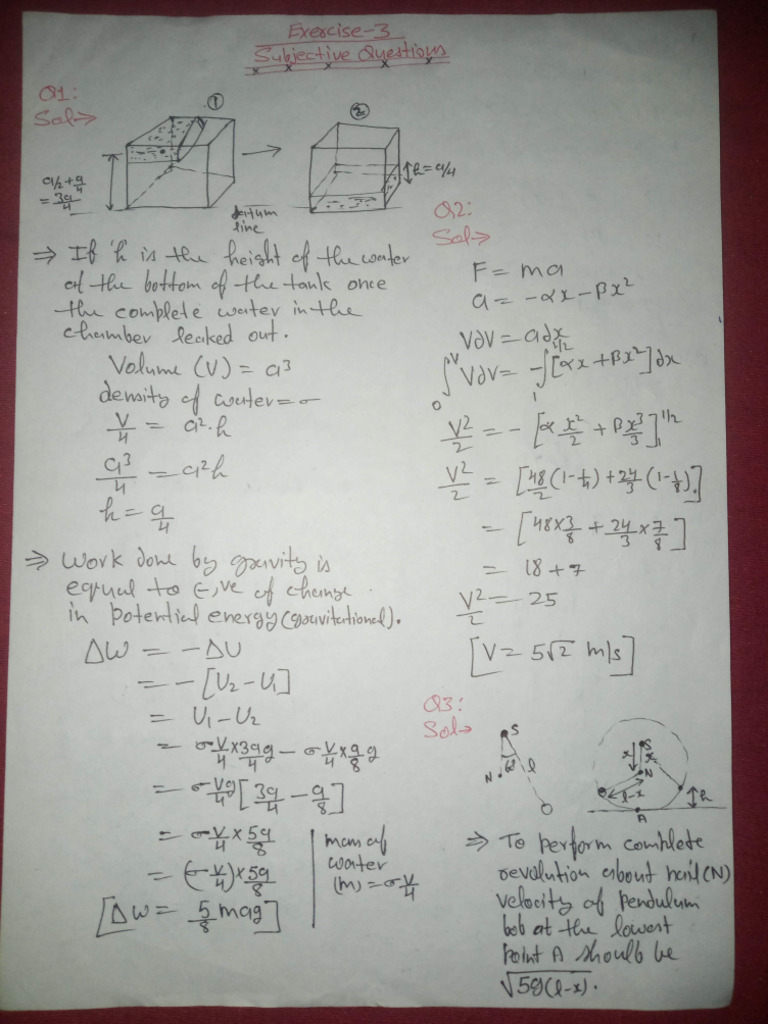 Exercise-3
Subjective Questions
Q1:
Sol→
①
②
a/2 + a/4
= 3a/4
h = a/4
datum
line
⇒ If 'h' is the height of the water
at the bottom of the tank once
the complete water in the
chamber leaked out.
Volume (V) = a³
density of water = σ
V/4 = a².h
a³/4 = a²h
h = a/4
⇒ Work done by gravity is
equal to (-)ve of change
in potential energy (gravitational).
ΔW = -ΔU
= -[U₂-U₁]
= U₁-U₂
= σV/4 × 3a/4 g - σV/4 × a/8 g
= σVg/4 [3a/4 - a/8]
= σV/4 × 5a/8
= (σV/4) × 5a/8
[ΔW = 5/8 mag]
mass of
water
(m) = σV/4
Q2:
Sol→
F = ma
a = -αx - βx²
VdV = adx
∫₀ⱽ VdV = -∫₁^1/2 [αx + βx²]dx
V²/2 = -[α x²/2 + β x³/3]₁^1/2
V²/2 = [48/2 (1-1/4) + 24/3 (1-1/8)]
= [48 × 3/8 + 24/3 × 7/8]
= 18 + 7
V²/2 = 25
[V = 5√2 m/s]
Q3:
Sol→
S
N
60°
l
S
x
x
N
l-x
h
A
⇒ To perform complete
revolution about nail (N)
velocity of pendulum
bob at the lowest
point A should be
√5g(l-x).